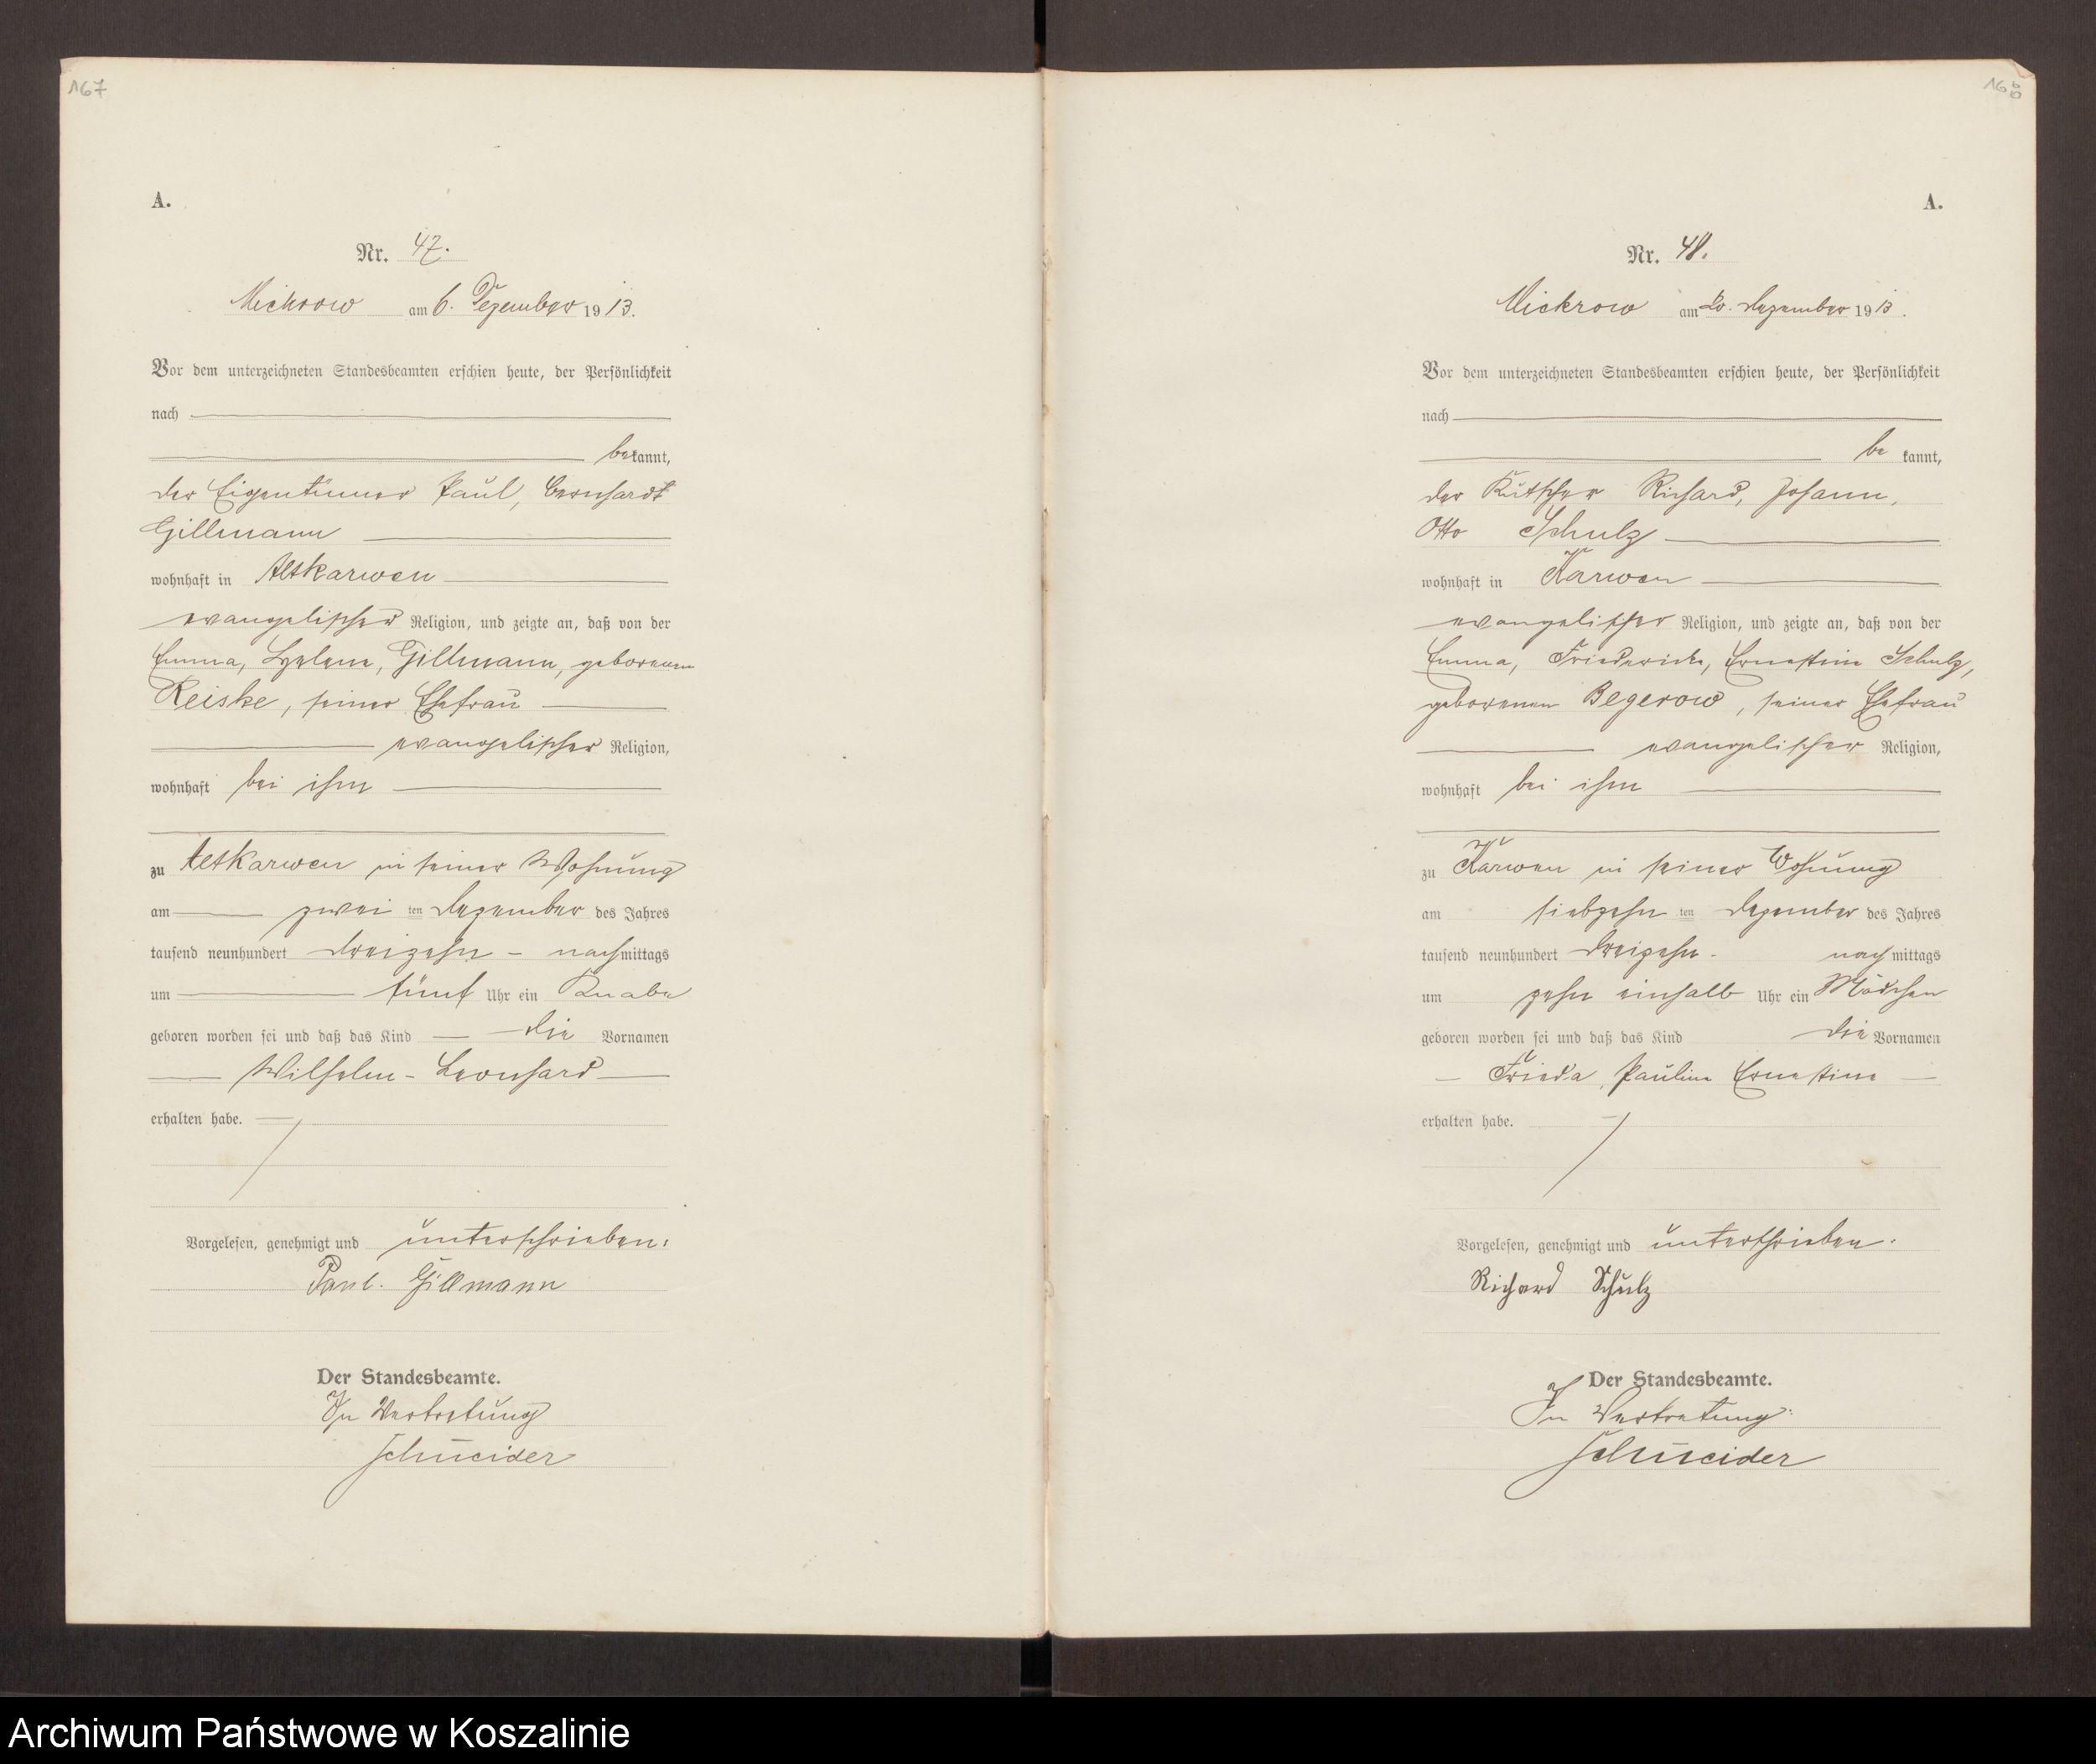 167
A.
Nr. 47.
Mickrow am 6. Dezember 1913.
Vor dem unterzeichneten Standesbeamten erschien heute, der Persönlichkeit
nach
bekannt,
der Eigentümer Paul, Bernhardt
Gillmann
wohnhaft in Altkarwen
evangelischer Religion, und zeigte an, daß von der
Emma, Helene, Gillmann, geborenen
Reiske, seiner Ehefrau
evangelischer Religion,
wohnhaft bei ihm
zu Altkarwen in seiner Wohnung
am zwei ten Dezember des Jahres
tausend neunhundert dreizehn - nachmittags
um fünf Uhr ein Knabe
geboren worden sei und daß das Kind die Vornamen
Wilhelm - Leonhard
erhalten habe.
Vorgelesen, genehmigt und unterschrieben:
Paul. Gillmann
Der Standesbeamte.
In Vertretung
Schneider
168
A.
Nr. 48.
Mickrow am 20. Dezember 1913.
Vor dem unterzeichneten Standesbeamten erschien heute, der Persönlichkeit
nach
be kannt,
der Kutscher Richard, Johann,
Otto Schulz
wohnhaft in Karwen
evangelischer Religion, und zeigte an, daß von der
Emma, Friedericke, Ernestine Schulz,
geborenen Begerow, seiner Ehefrau
evangelischer Religion,
wohnhaft bei ihm
zu Karwen in seiner Wohnung
am siebzehn ten Dezember des Jahres
tausend neunhundert dreizehn - nachmittags
um zehn einhalb Uhr ein Mädchen
geboren worden sei und daß das Kind die Vornamen
Frieda, Pauline Ernestine
erhalten habe.
Vorgelesen, genehmigt und unterschrieben.
Richard Schulz
Der Standesbeamte.
In Vertretung:
Schneider
Archiwum Państwowe w Koszalinie